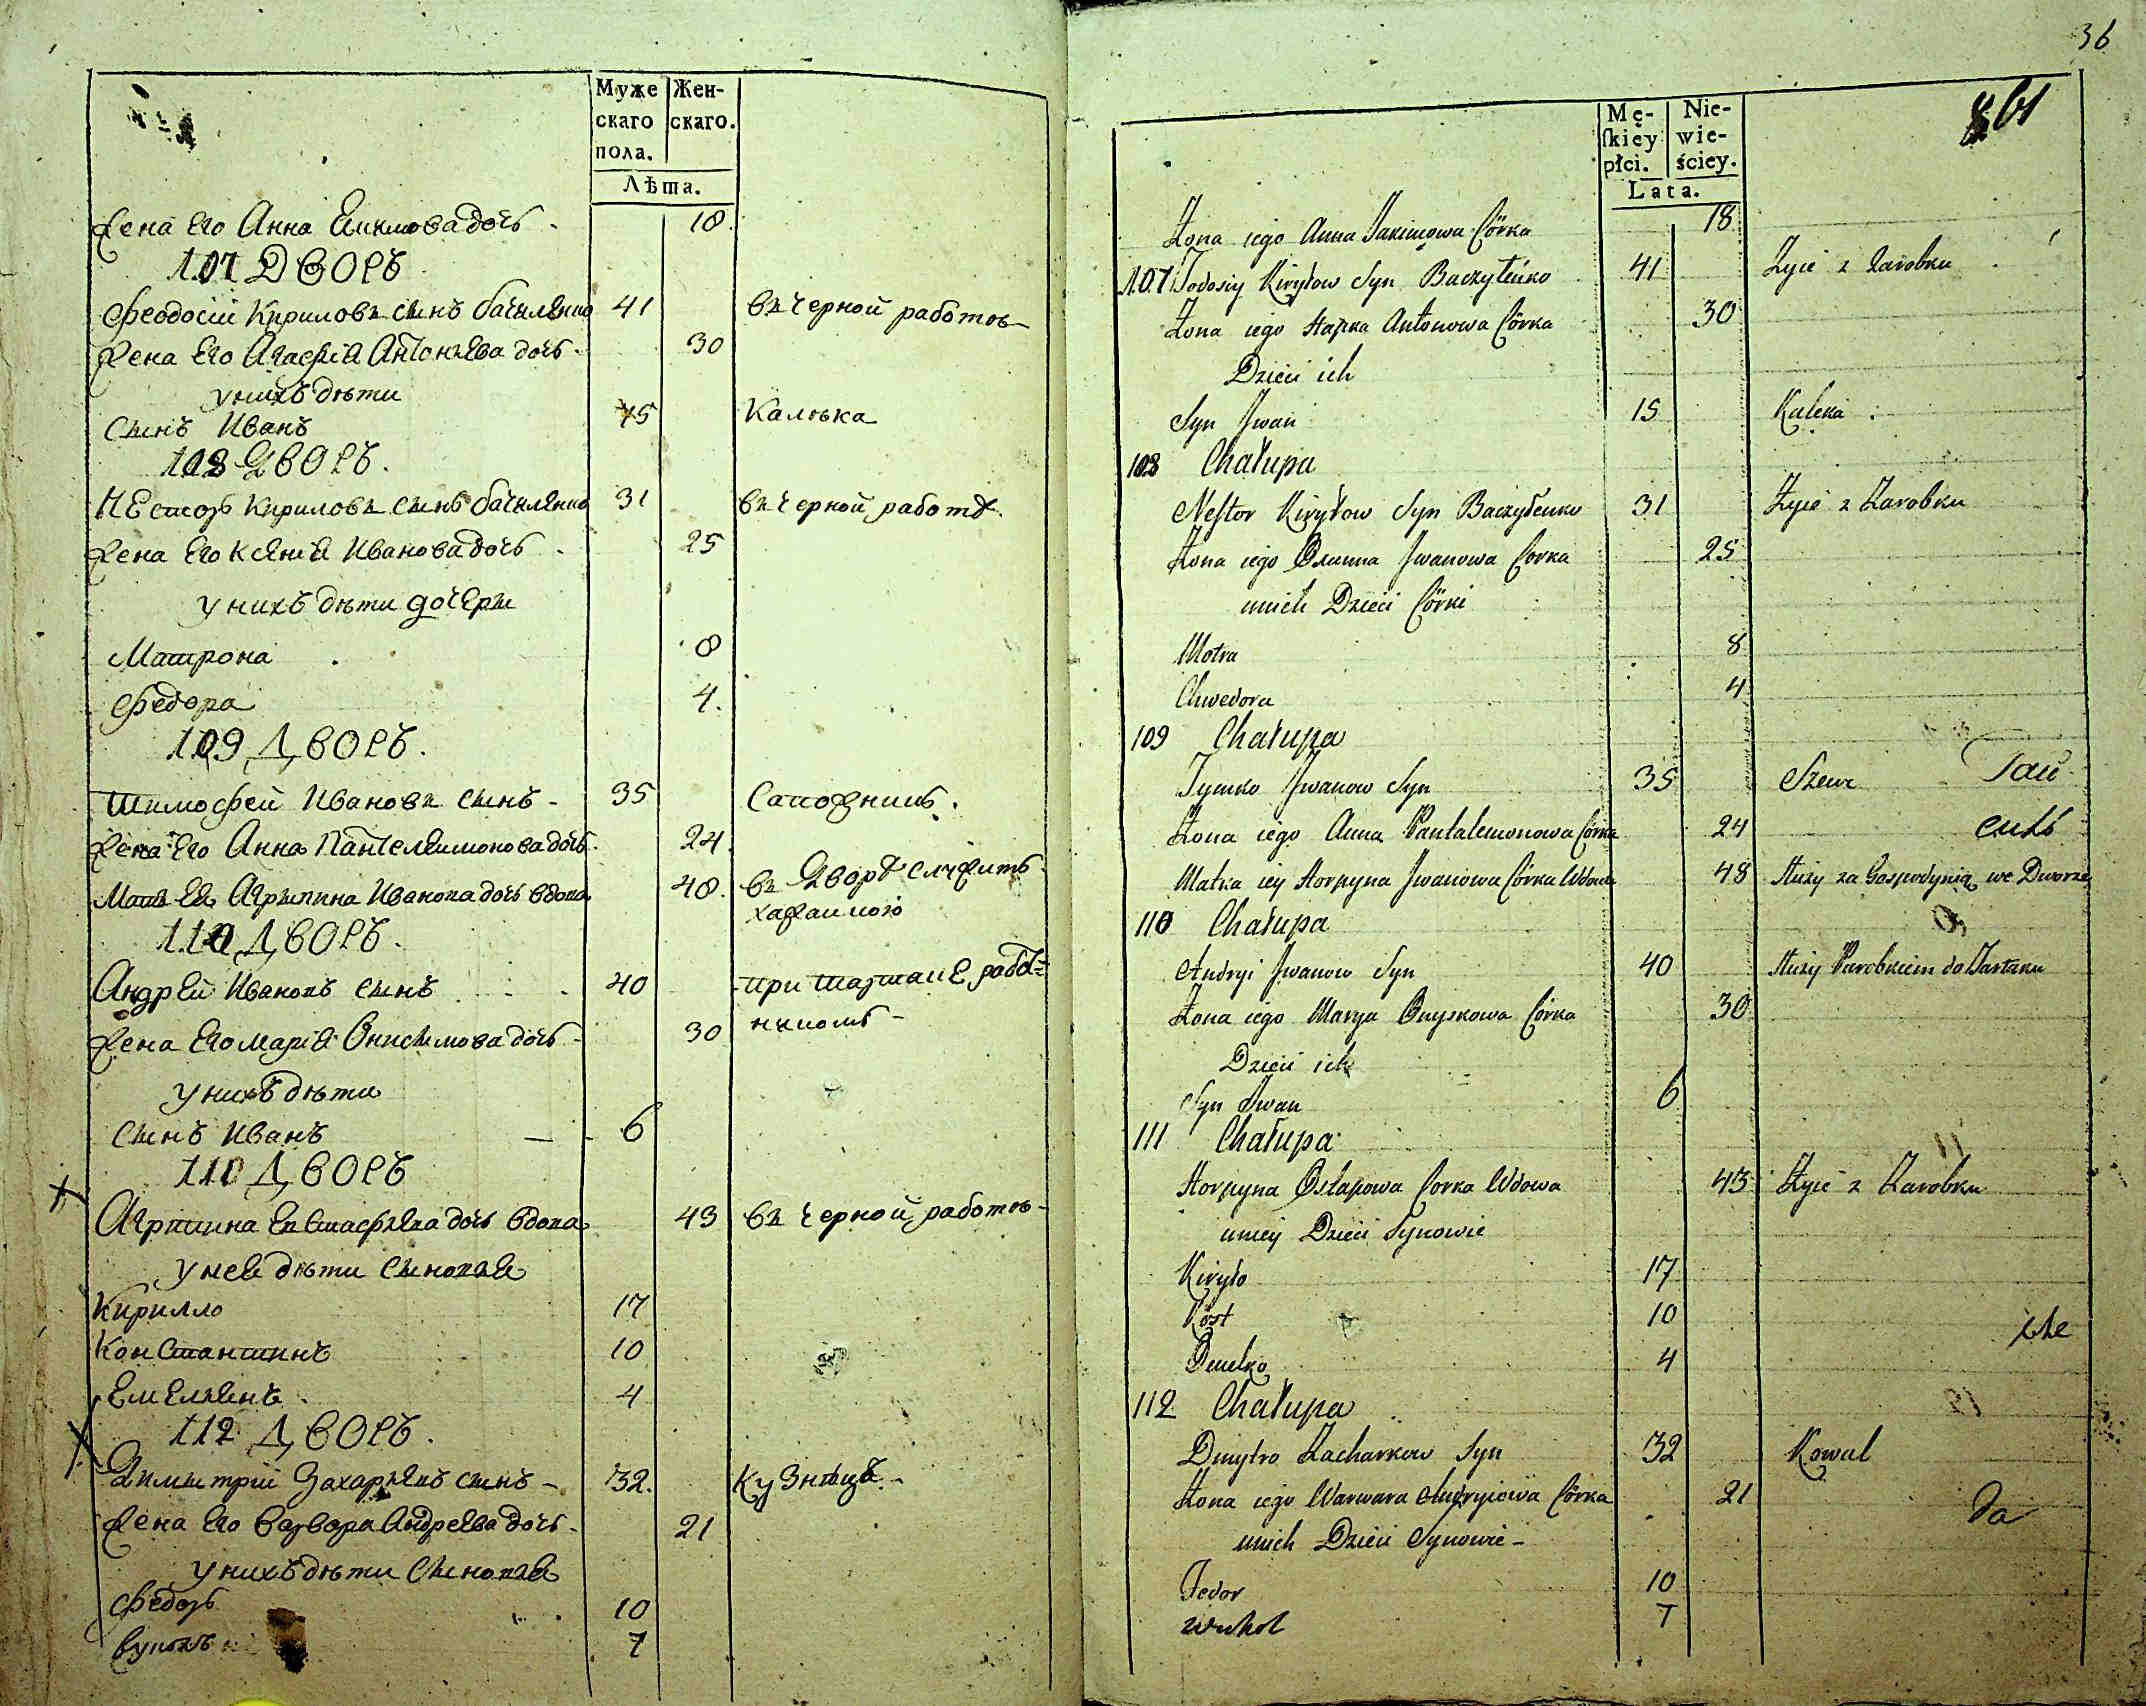 Муже
скаго
пола.
Жен-
скаго.
Лѣта.
жена его Анна Екимова дочь 18
107 Дворъ
Феодосій Кириловъ сынъ Бачиленко 41 въ черной работѣ
жена его Агафія Антоніева дочь 30
у нихъ дѣти
сынъ Иванъ 15 Калѣка
108 Дворъ.
Несторъ Кириловъ сынъ Бачиленко 31 въ черной работѣ.
жена его Ксенія Иванова дочь 25
у нихъ дѣти дочери
Матрона 8
Федора 4.
109 Дворъ.
Тимофей Ивановъ сынъ 35 Сапожникъ.
жена его Анна Пантелеимонова дочь 24
мать ея Агрипина Иванова дочь вдова 48. въ дворѣ служитъ
110 Дворъ.
Андрей Ивановъ сынъ 40 при тартаке работ=
жена его Марія Онисимова дочь 30 никомъ
у нихъ дѣти
сынъ Иванъ 6
111 Дворъ
Агрипина Евстафіева дочь вдова 43 въ черной работѣ
у нея дѣти сыновья
Кирилло 17
Константинъ 10
Емельянъ 4
112 Дворъ.
Димитрій Захаріевъ сынъ 32. Кузнецъ.
жена его Варвара Андреева дочь 21
у нихъ дѣти сыновья
Федоръ 10
Вуколъ 7
36
Mę-
ſkiey
płci.
Nie-
wie-
ściey.
Lata.
Żona iego Anna Jakimowa Córka 18
107 Fodosiy Kiryłow Syn Baczyłenko 41 Żyie z Zarobku
Żona iego Hapka Antonowa Córka 30
Dzieci ich
Syn Jwan 15 Kaleka
108 Chałupa
Neſtor Kiryłow Syn Baczyłenko 31 Żyie z Zarobku
Żona iego Oxenna Jwanowa Corka 25
unich Dzieci Córki
Motra 8
Chwedora 4
109 Chałupa
Tymko Jwanow Syn 35 Szewc
Żona iego Anna Pantalemonowa Córka 24
Matka iey Horpyna Jwanowa Córka Wdowa 48 Służy za Gospodynią we Dworze
110 Chałupa
Andryi Jwanow Syn 40 Służy Parobkiem do Tartaku
Żona iego Marya Onyskowa Córka 30
Dzieci ich
Syn Jwan 6
111 Chałupa
Horpyna Ostapowa Corka Wdowa 43 Żyie z Zarobku
uniey Dzieci Synowie
Kiryło 17
Kost 10
Omelko 4
112 Chałupa
Dmytro Zacharkow Syn 32 Kowal
Żona iego Warwara Andryiowa Córka 21
da
unich Dzieci Synowie
Fedor 10
Wukol 7